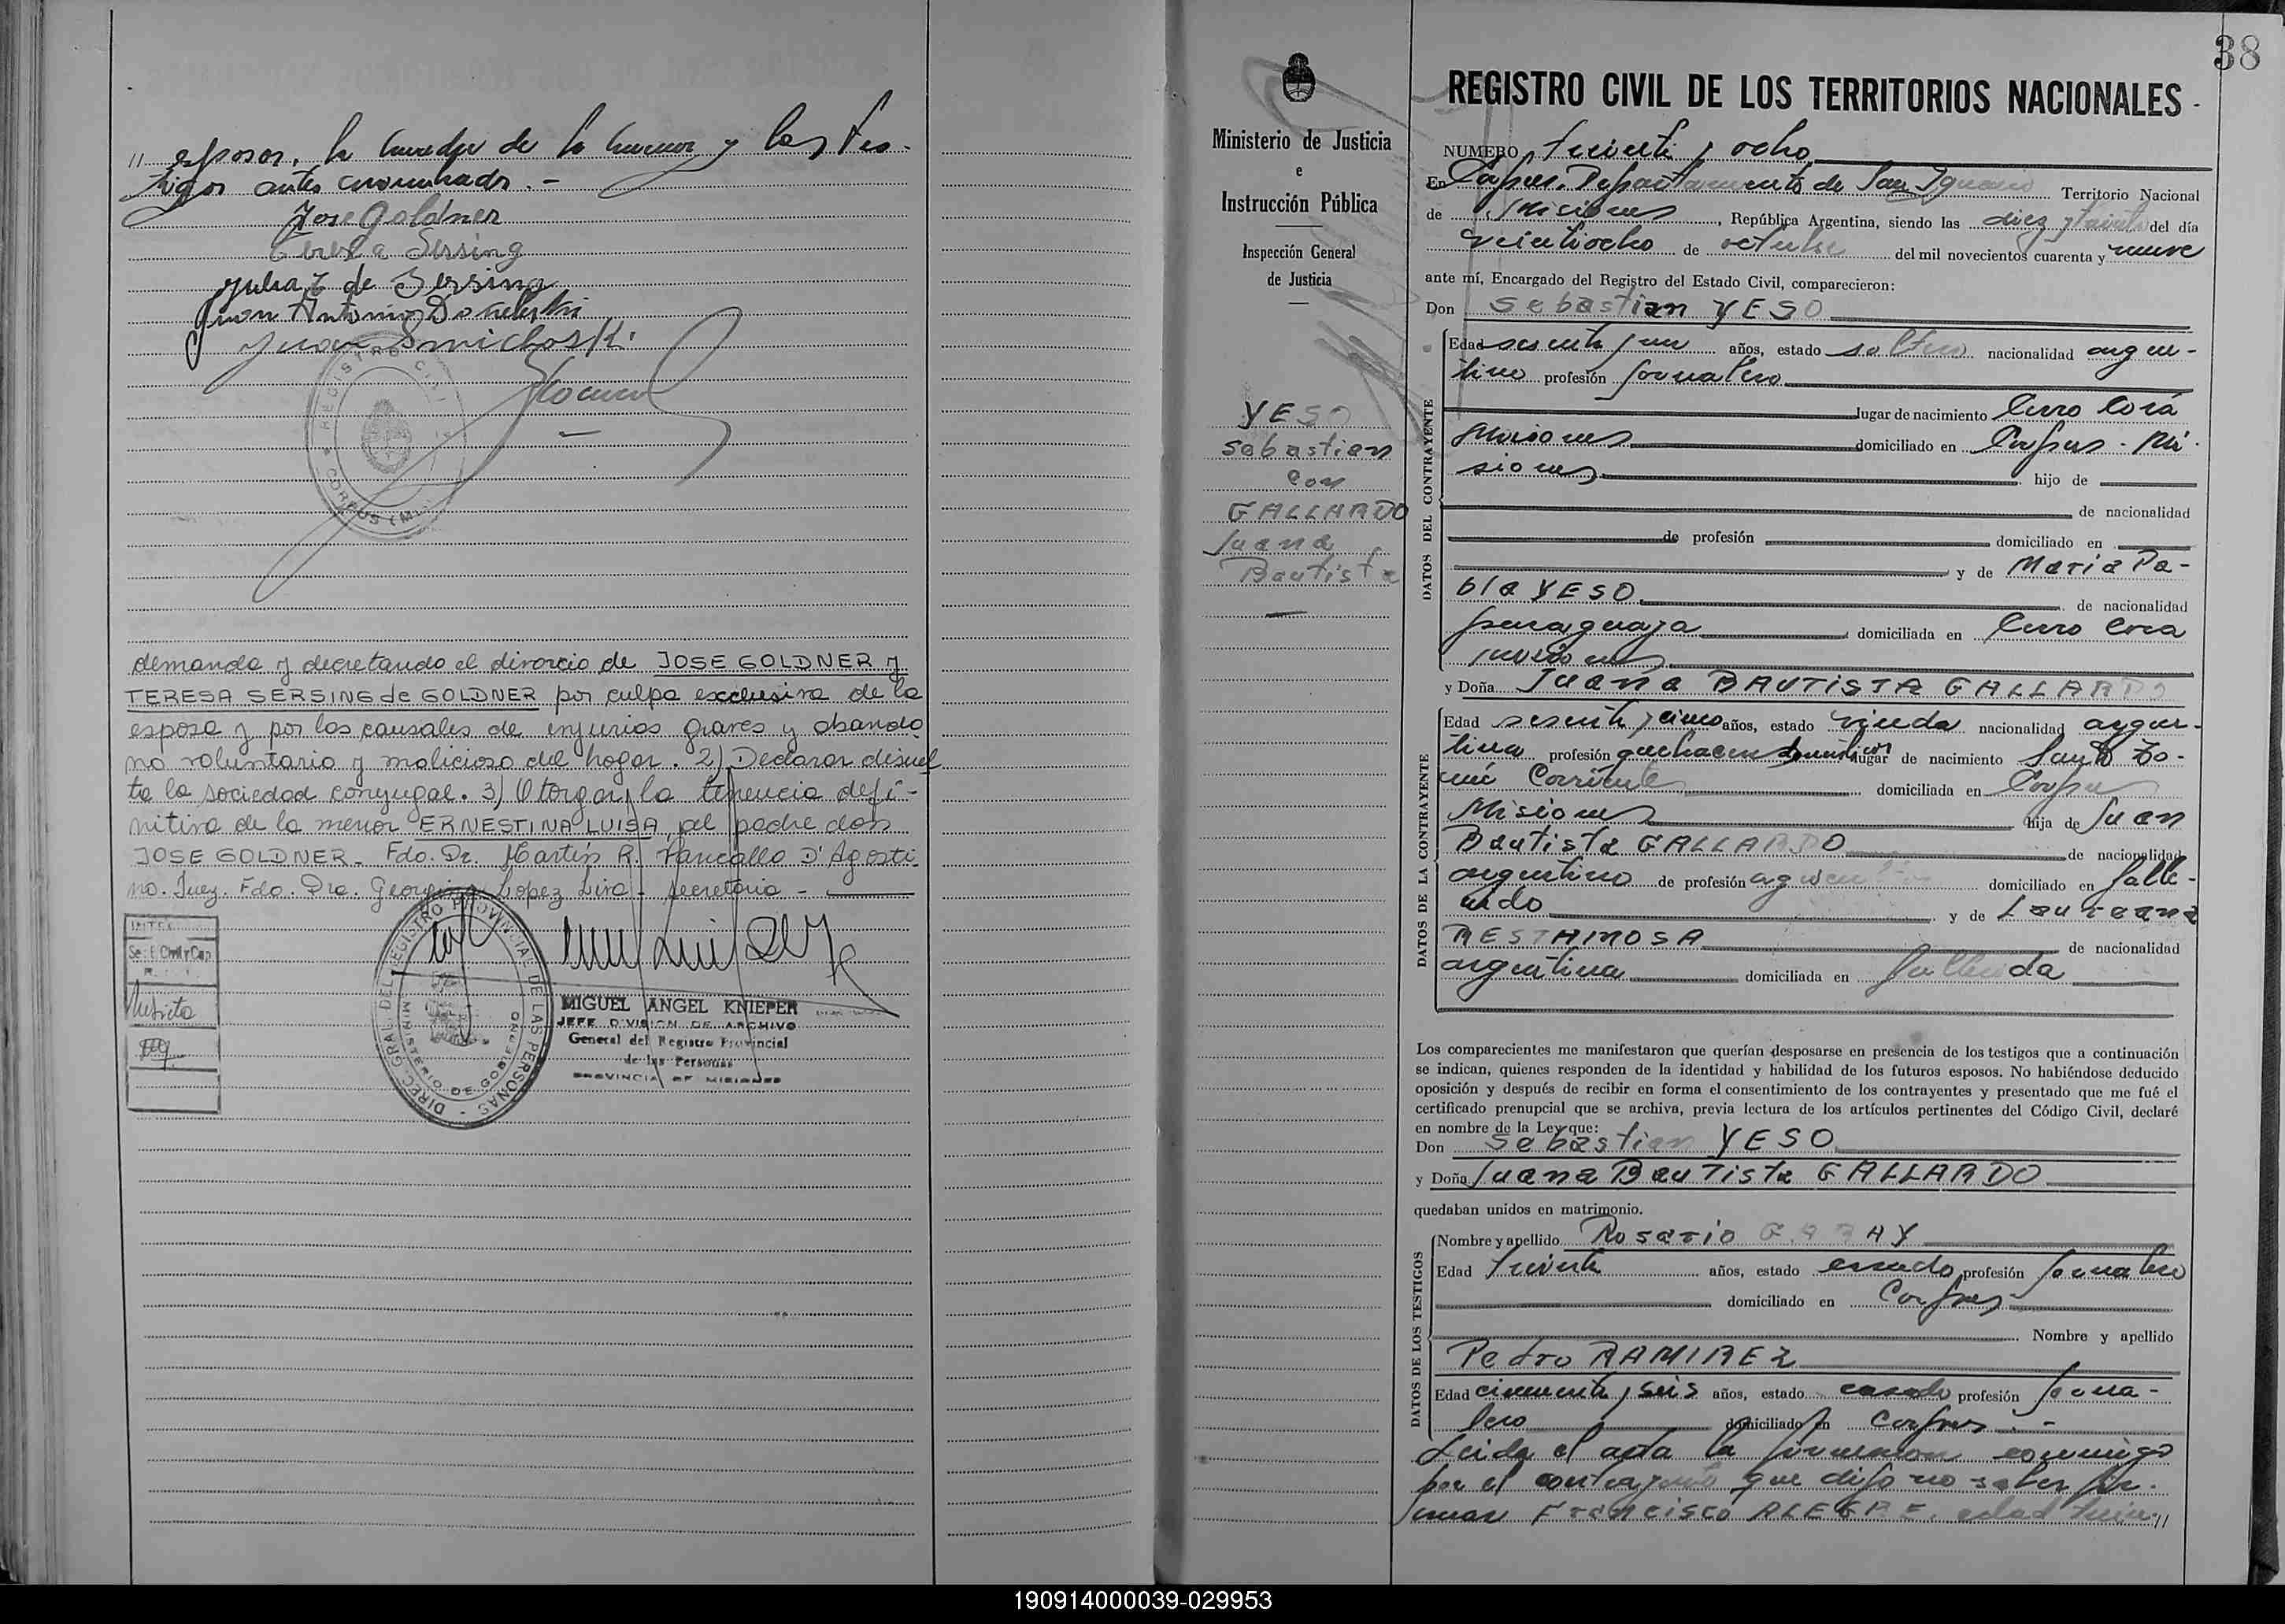 // esposos, la madre de la menor y los tes-
tigos antes enumerados. -
Jose Goldner
Teresa Sersing
Julia Z de Sersing
Juan Antonio
Juan
REGISTRO CIVIL
CORPUS (M.)
demanda y decretando el divorcio de JOSE GOLDNER y
TERESA SERSING de GOLDNER por culpa exclusiva de la
esposa y por las causales de injurias graves y abando
no voluntario y malicioso del hogar. 2) Declarar disuel
ta la sociedad conyugal. 3) Otorgar la tenencia defi-
nitiva de la menor ERNESTINA LUISA, al padre don
JOSE GOLDNER - Fdo. Dr. Martin R. D'Agosti
no. Juez. Fdo. Dra. Georgina Lopez Liva - secretaria -
DIREC. GRAL. DEL REGISTRO PROVINCIAL DE LAS PERSONAS
MINISTERIO DE GOBIERNO
MIGUEL ANGEL KNIEPER
JEFE DIVISION DE ARCHIVO
General del Registro Provincial
de las Personas
PROVINCIA DE MISIONES
38
Ministerio de Justicia
e
Instrucción Pública
Inspección General
de Justicia
YESO
Sebastian
con
GALLARDO
Juana
Bautista
REGISTRO CIVIL DE LOS TERRITORIOS NACIONALES
NUMERO treinta y ocho
En Corpus. Departamento de San Ignacio Territorio Nacional
de Misiones, República Argentina, siendo las diez y treinta del día
veintiocho de octubre del mil novecientos cuarenta y nueve
ante mí, Encargado del Registro del Estado Civil, comparecieron:
Don Sebastian YESO
DATOS DEL CONTRAYENTE
Edad sesenta y un años, estado soltero nacionalidad argen-
tino profesión Jornalero
lugar de nacimiento Cerro Corá
Misiones domiciliado en Corpus - Mi-
siones hijo de
de nacionalidad
de profesión domiciliado en
y de Maria Pa-
bla YESO de nacionalidad
paraguaya domiciliada en Cerro Cora
Misiones
y Doña Juana BAUTISTA GALLARDO
DATOS DE LA CONTRAYENTE
Edad sesenta y cinco años, estado viuda nacionalidad argen-
tina profesión quehaceres domésticos lugar de nacimiento Santo To-
mé Corrientes domiciliada en Corpus
Misiones hija de Juan
Bautista GALLARDO de nacionalidad
argentino de profesión domiciliado en falle-
cido y de Laureana
RESTAMOSA de nacionalidad
argentina domiciliada en fallecida
Los comparecientes me manifestaron que querían desposarse en presencia de los testigos que a continuación
se indican, quienes responden de la identidad y habilidad de los futuros esposos. No habiéndose deducido
oposición y después de recibir en forma el consentimiento de los contrayentes y presentado que me fué el
certificado prenupcial que se archiva, previa lectura de los artículos pertinentes del Código Civil, declaré
en nombre de la Ley que:
Don Sebastian YESO
y Doña Juana Bautista GALLARDO
quedaban unidos en matrimonio.
DATOS DE LOS TESTIGOS
Nombre y apellido Rosario GARAY
Edad treinta años, estado casado profesión Jornalero
domiciliado en Corpus
Nombre y apellido
Pedro RAMIREZ
Edad cincuenta y seis años, estado casado profesión Jorna-
lero domiciliado en Corpus -
Leida el acta la firmaron conmigo
por el contrayente que dijo no saber fir-
mar Francisco ALEGRE, edad trein-//
190914000039-029953